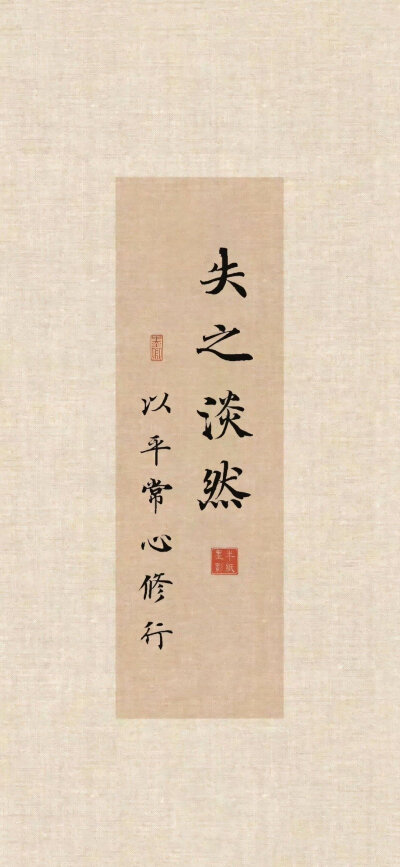 失之淡然
以平常心修行